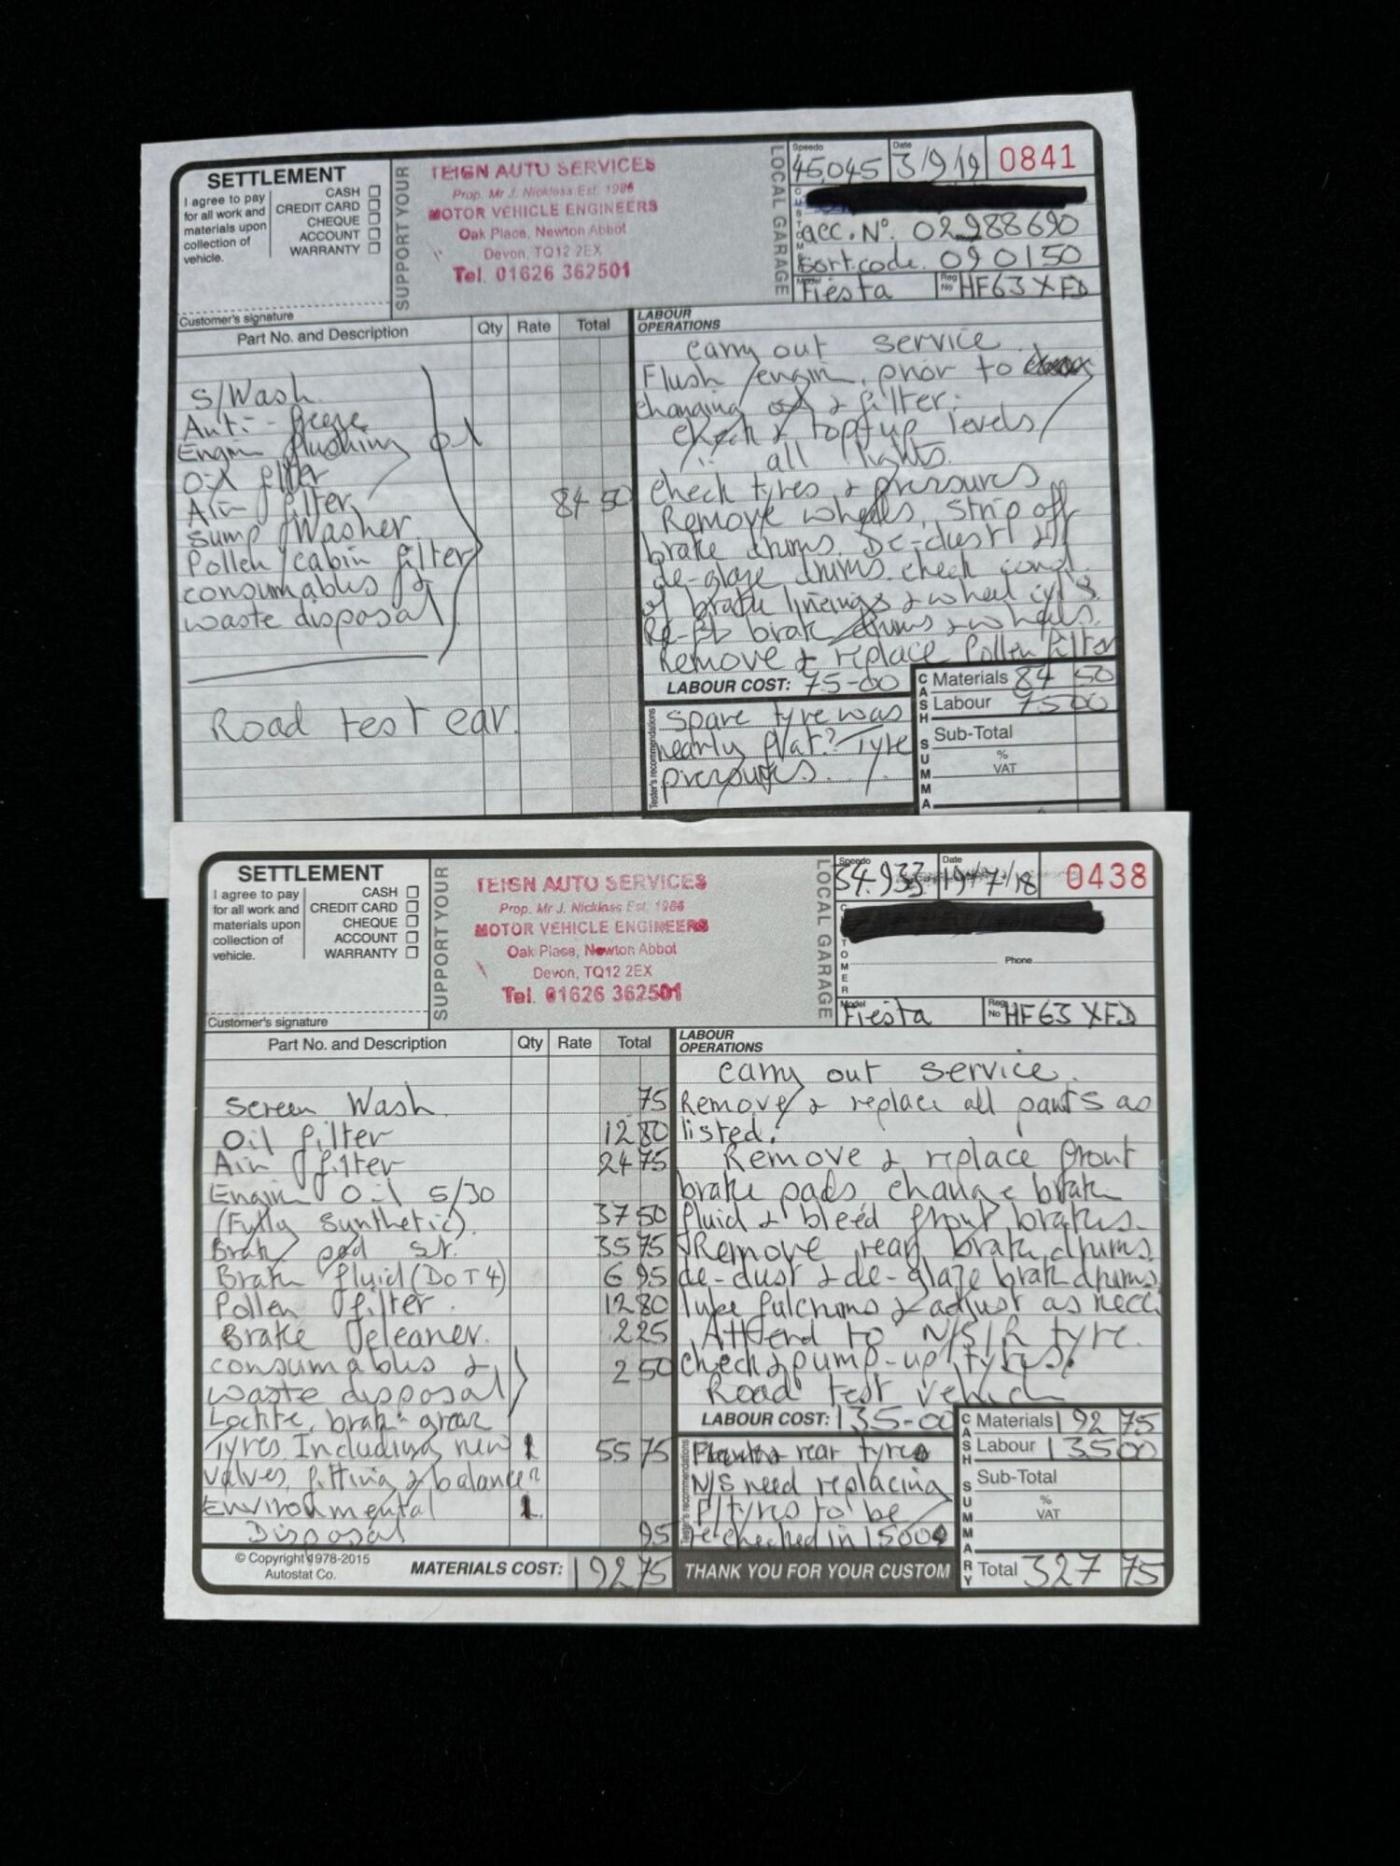 SETTLEMENT
I agree to pay
for all work and
materials upon
collection of
vehicle.
CASH
CREDIT CARD
CHEQUE
ACCOUNT
WARRANTY
Customer's signature
SUPPORT YOUR
TEIGN AUTO SERVICES
Prop. Mr J. Nickless Est. 1986
MOTOR VEHICLE ENGINEERS
Oak Place, Newton Abbot
Devon, TQ12 2EX
Tel. 01626 362501
LOCAL GARAGE
Speedo 45,045
Date 3/9/19
0841
acc. No. 02988690
Sortcode. 090150
Model Fiesta
Reg No HF63 XFD
Part No. and Description Qty Rate Total
S/Wash
Anti-freeze
Engin flushing oil
Oil filter
Air filter 84 50
Sump Washer
Pollen/cabin filter
consumables &
waste disposal
Road test car.
LABOUR
OPERATIONS
carry out service
Flush engin, prior to
changing oil & filter.
check & top-up levels
all lights.
check tyres & pressures
Remove wheels, strip off
brake drums. De-dust &
de-glaze drums. check cond.
of brake linings & wheel cyl's.
Re-fit brak drums & wheels.
Remove & replace Pollen filter
LABOUR COST: 75-00
Tester's recommendations
Spare tyre was
nearly flat? Tyre
pressures.
CASH SUMMA
Materials 84 50
Labour 75 00
Sub-Total
%
VAT
SETTLEMENT
I agree to pay
for all work and
materials upon
collection of
vehicle.
CASH
CREDIT CARD
CHEQUE
ACCOUNT
WARRANTY
Customer's signature
SUPPORT YOUR
TEIGN AUTO SERVICES
Prop. Mr J. Nickless Est. 1986
MOTOR VEHICLE ENGINEERS
Oak Place, Newton Abbot
Devon, TQ12 2EX
Tel. 01626 362501
LOCAL GARAGE
Speedo 34.933
Date 19/7/18
0438
CUSTOMER
Phone
Model Fiesta
Reg No HF63 XFD
Part No. and Description Qty Rate Total
Screen Wash 75
Oil filter 12 80
Air filter 24 75
Engin Oil 5/30
(Fully Synthetic). 37 50
Brak pad st. 35 75
Brak fluid (DOT4) 6 95
Pollen filter. 12 80
Brake cleaner. 2 25
consumables &
waste disposal 2 50
Loctite, brak grease
Tyres Including new 1 55 75
valves, fitting & balance
Environmental 1
Disposal 95
© Copyright 1978-2015
Autostat Co.
MATERIALS COST: 192 75
LABOUR
OPERATIONS
carry out service.
Remove & replace all parts as
listed.
Remove & replace front
brake pads, change brak
fluid & bleed front brakes.
Remove rear brake drums.
de-dust & de-glaze brak drums
lube fulchrums & adjust as necc.
Attend to N/S/R tyre.
check & pump-up tyres.
Road test vehicle
LABOUR COST: 135-00
Tester's recommendations
rear tyre
N/S need replacing
F/tyres to be
re-checked in 1500
THANK YOU FOR YOUR CUSTOM
CASH SUMMARY
Materials 192 75
Labour 135 00
Sub-Total
%
VAT
Total 327 75